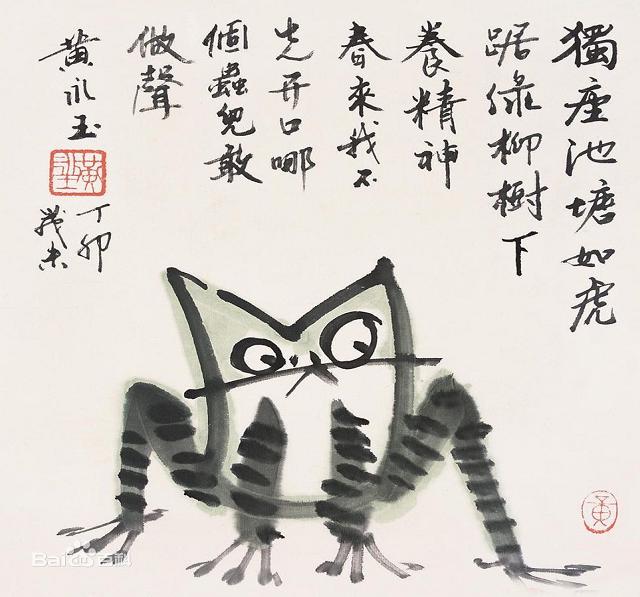 獨座池塘如虎
踞綠柳樹下
養精神
春來我不
先开口哪
個蟲兒敢
做聲
黄永玉
丁卯
歲末
黄
Baidu百科